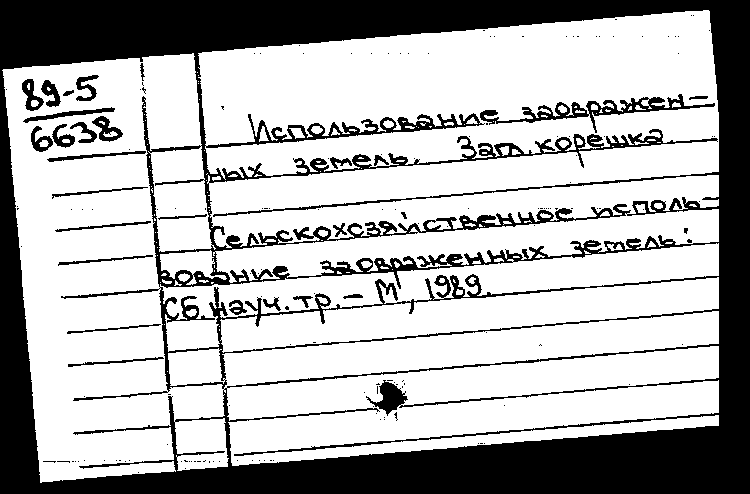 89-5
6638
Использование заовражен-
ных земель. Загл. корешка.
Сельскохозяйственное исполь-
зование заовраженных земель:
Сб. науч. тр. - М, 1989.